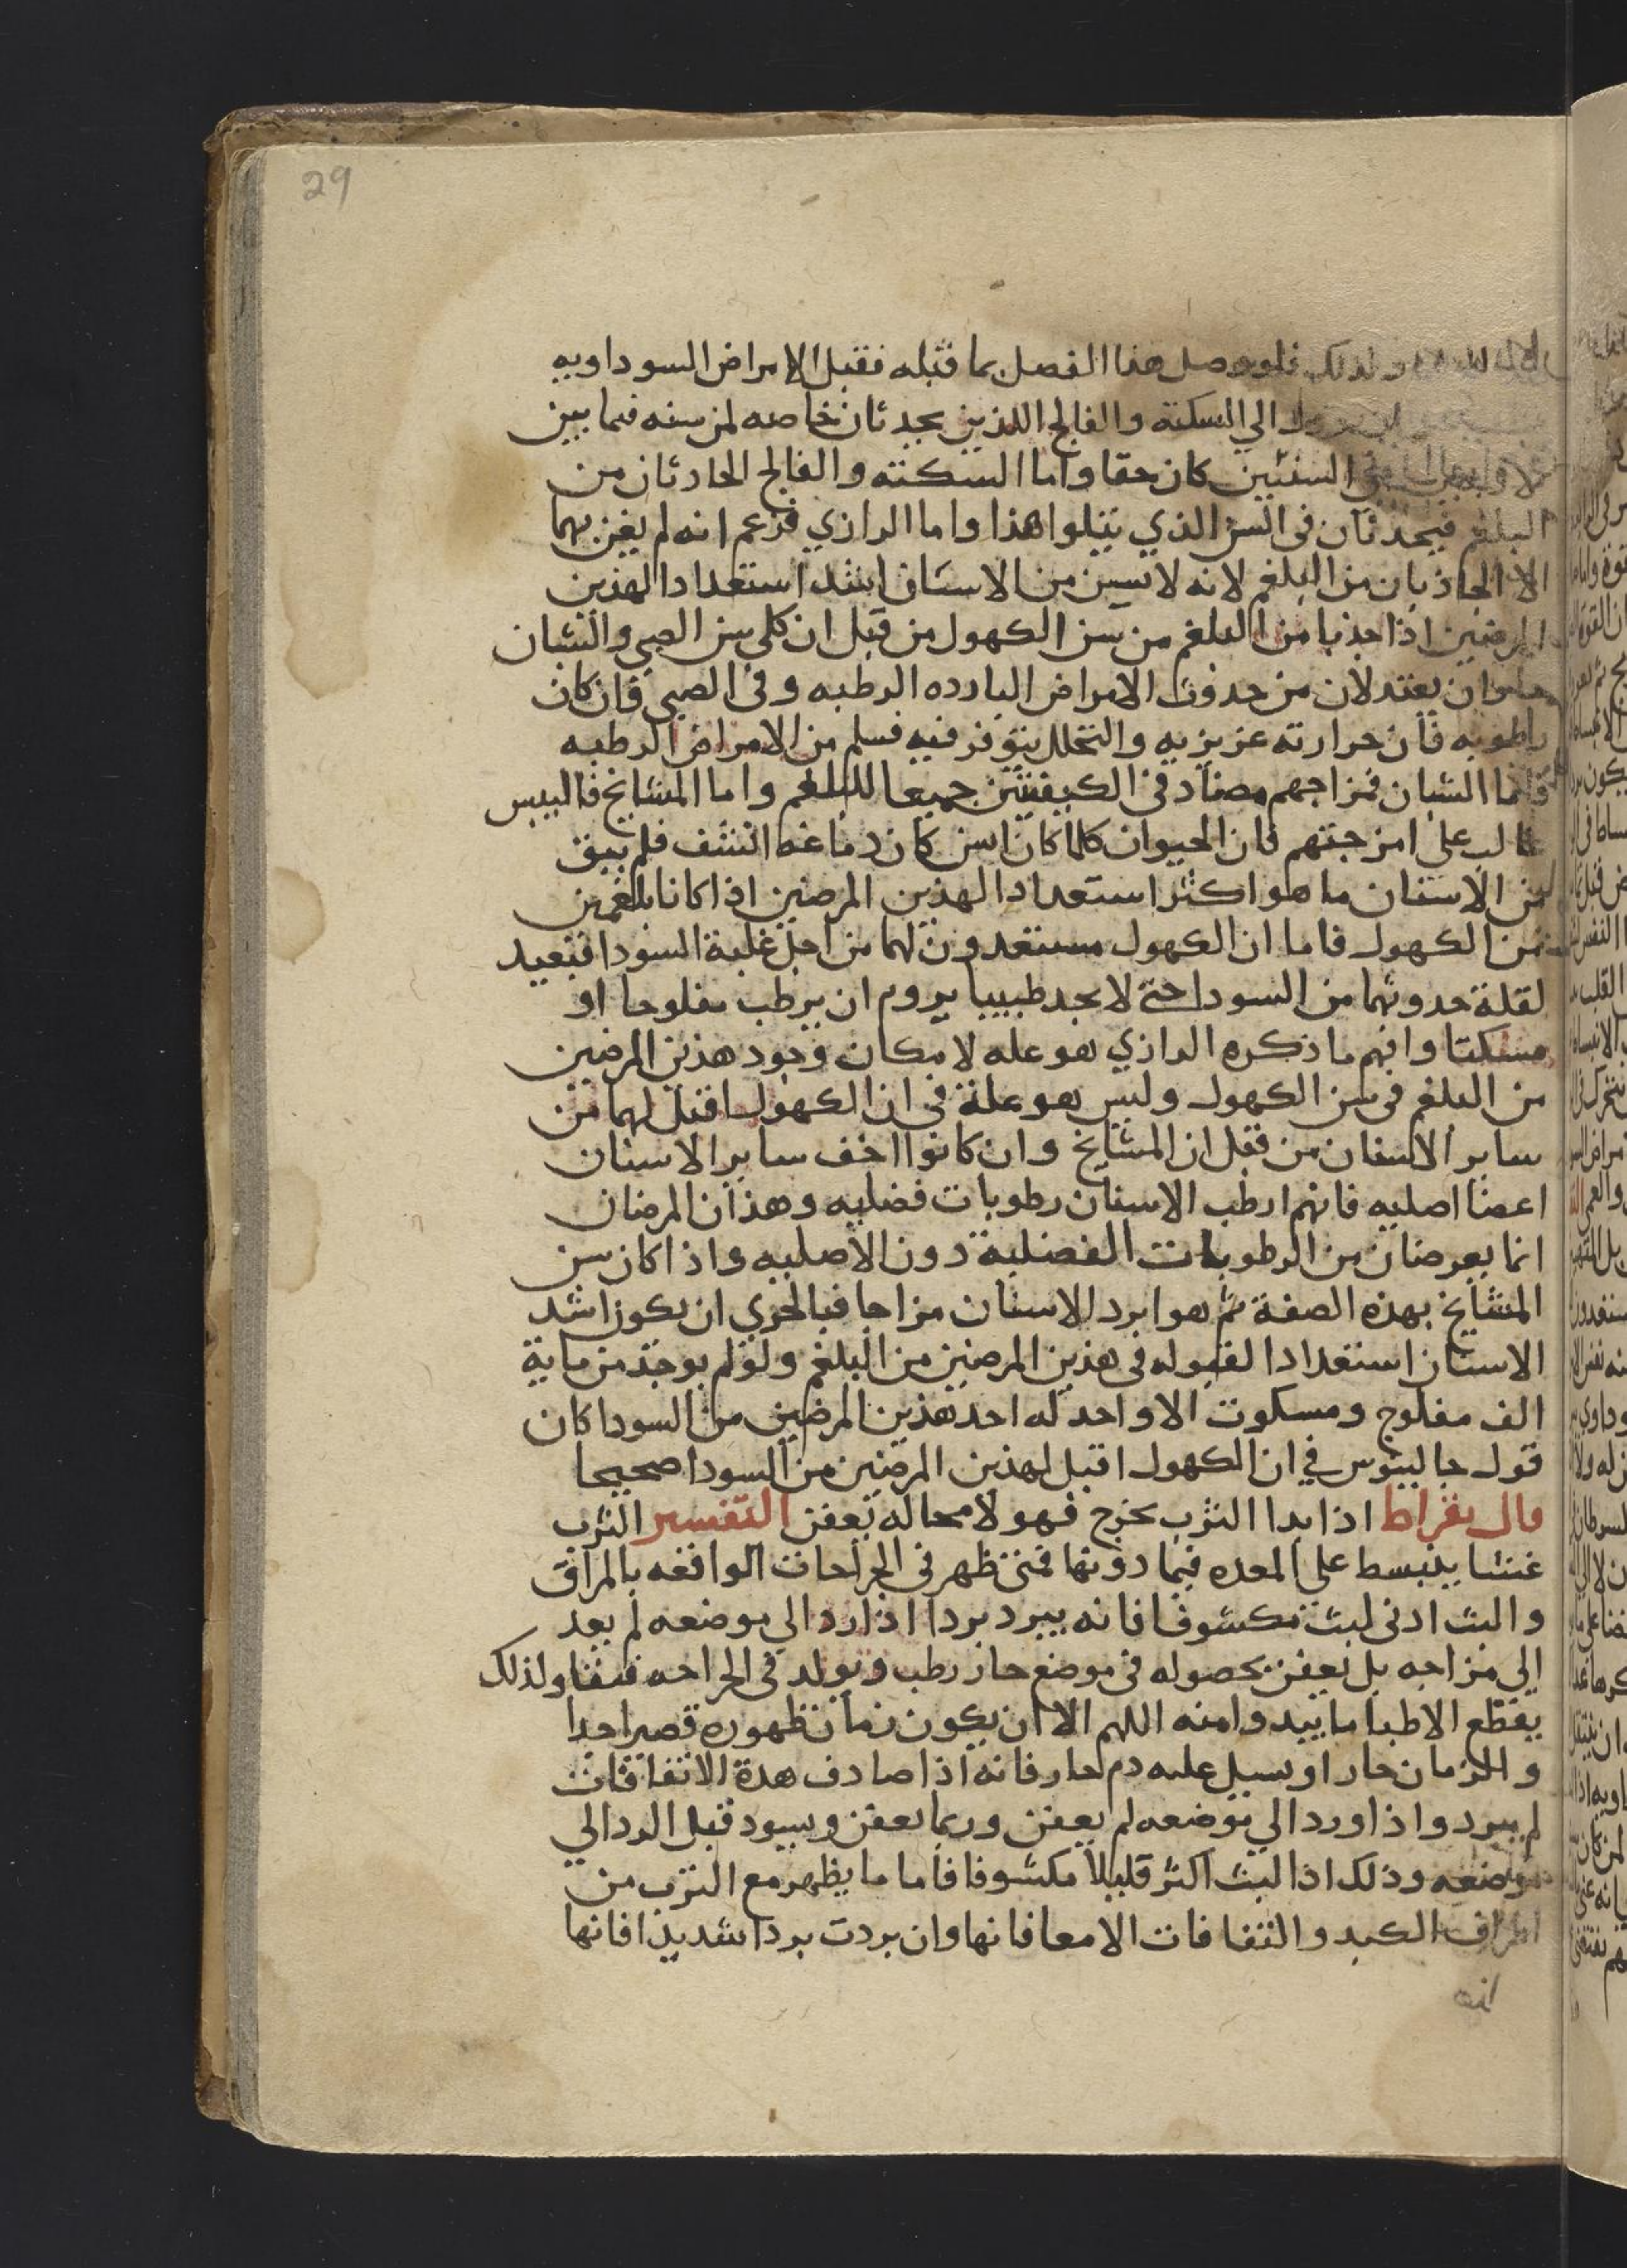 29
ولذلك فلو وصل هذا الفصل بما قبله فقيل الامراض السوداويه
الي السكتة والفالج اللذين يحدثان خاصه لمن سنه فيما بين
السنتين كان حقا واما السكتته والفالج الحادثان من
البلغم فيحدثان في السن الذي يتلوا هذا واما الرازي فزعم انه لم يعن بهما
الا الحادثان من البلغم لانه لا سن من الاسنان اشد استعدادا لهذين
المرضين اذا حدثا من البلغم من سن الكهول من قبل ان كلي سن الصبي والشبان
يعتدلان من حدوث الامراض البارده الرطبه وفي الصبي فان كان
رطوبه فان حرارته عزيزيه والتحلل يتوفر فيه فسلم من الامراض الرطبه
فاما الشبان فمزاجهم مضاد في الكيفيتين جميعا للبلغم واما المشايخ فاليبس
غالب علي امزجتهم فان الحيوان كلما كان اسن كان دماغه انشف فلم يبق
من الاسنان ما هو اكثر استعدادا لهذين المرضين اذا كانا بلغمين
من الكهول فاما ان الكهول مستعدون لهما من اجل غلبة السودا فبعيد
لقلة حدوثهما من السودا حتي لا يجد طبيبا يروم ان يرطب مفلوحا او
مسكتا وانهم ما ذكره الرازي هو عله لامكان وجود هذين المرضين
من البلغم في سن الكهول وليس هو علة في ان الكهول اقبل لهما من
ساير الاسنان من قبل ان المشايخ وان كانوا اخف ساير الاسنان
اعضا اصليه فانهم ارطب الاسنان رطوبات فضليه وهذان المرضان
انما يعرضان من الرطوبات الفضلية دون الاصليه واذا كان سن
المشايخ بهذه الصفة ثم هو ابرد الاسنان مزاجا فبالحري ان يكون اشد
الاسنان استعدادا لقبوله في هذين المرضين من البلغم ولو لم يوجد من ماية
الف مفلوج ومسكوت الا واحد له احد هذين المرضين من السودا كان
قول جالينوس في ان الكهول اقبل لهذين المرضين من السودا صحيحا
قال بقراط اذا بدا الثرب يخرج فهو لا محاله تعفن التفسير الثرب
غشا ينبسط علي المعده فيما دونها فمتى ظهر في الجراحات الواقعه بالمراق
والبث ادني لبث مكشوفا فانه يبرد بردا اذا رد الي موضعه لم يعد
الي مزاجه بل تعفن بحصوله في موضع حار رطب وتولد في الجراحه عفنا ولذلك
يقطع الاطبا ما يبدوا منه اللهم الا ان يكون زمان ظهوره قصيرا جدا
والزمان حارا ويسيل عليه دم حار فانه اذا صادف هدة الاتفاقات
لم يبرد واذا ورد الي موضعه لم يعفن وربما تعفن ويسود قبل الرد الي
موضعه وذلك اذا لبث اكثر قليلا مكشوفا فاما ما يظهر مع الثرب من
اطراف الكبد والتفافات الامعا فانها وان بردت بردا شديدا فانها